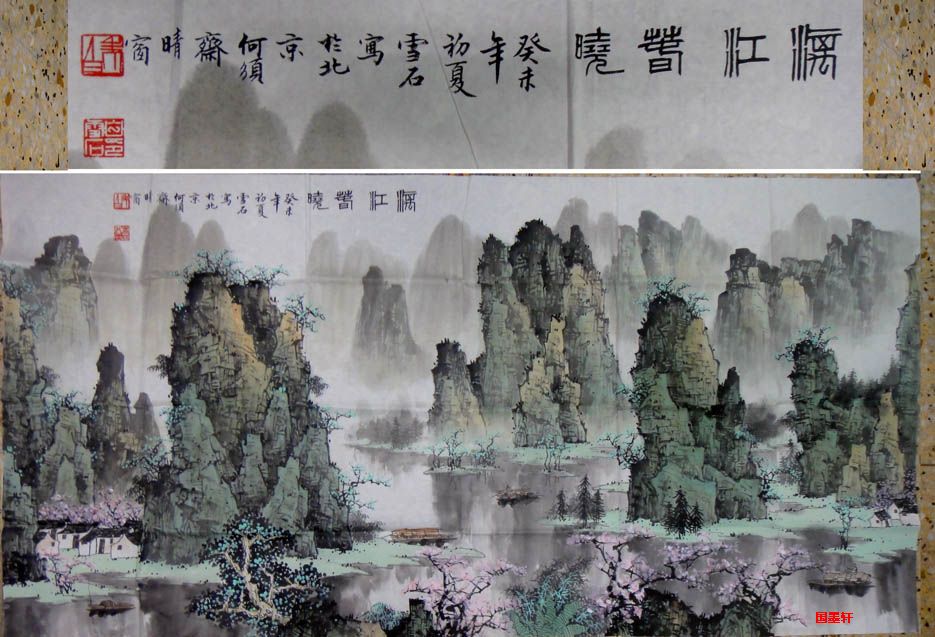 漓江春曉 癸未年初夏雪石寫於北京何須齋晴窗
漓江春曉 癸未年初夏雪石寫於北京何須齋晴窗
国墨轩